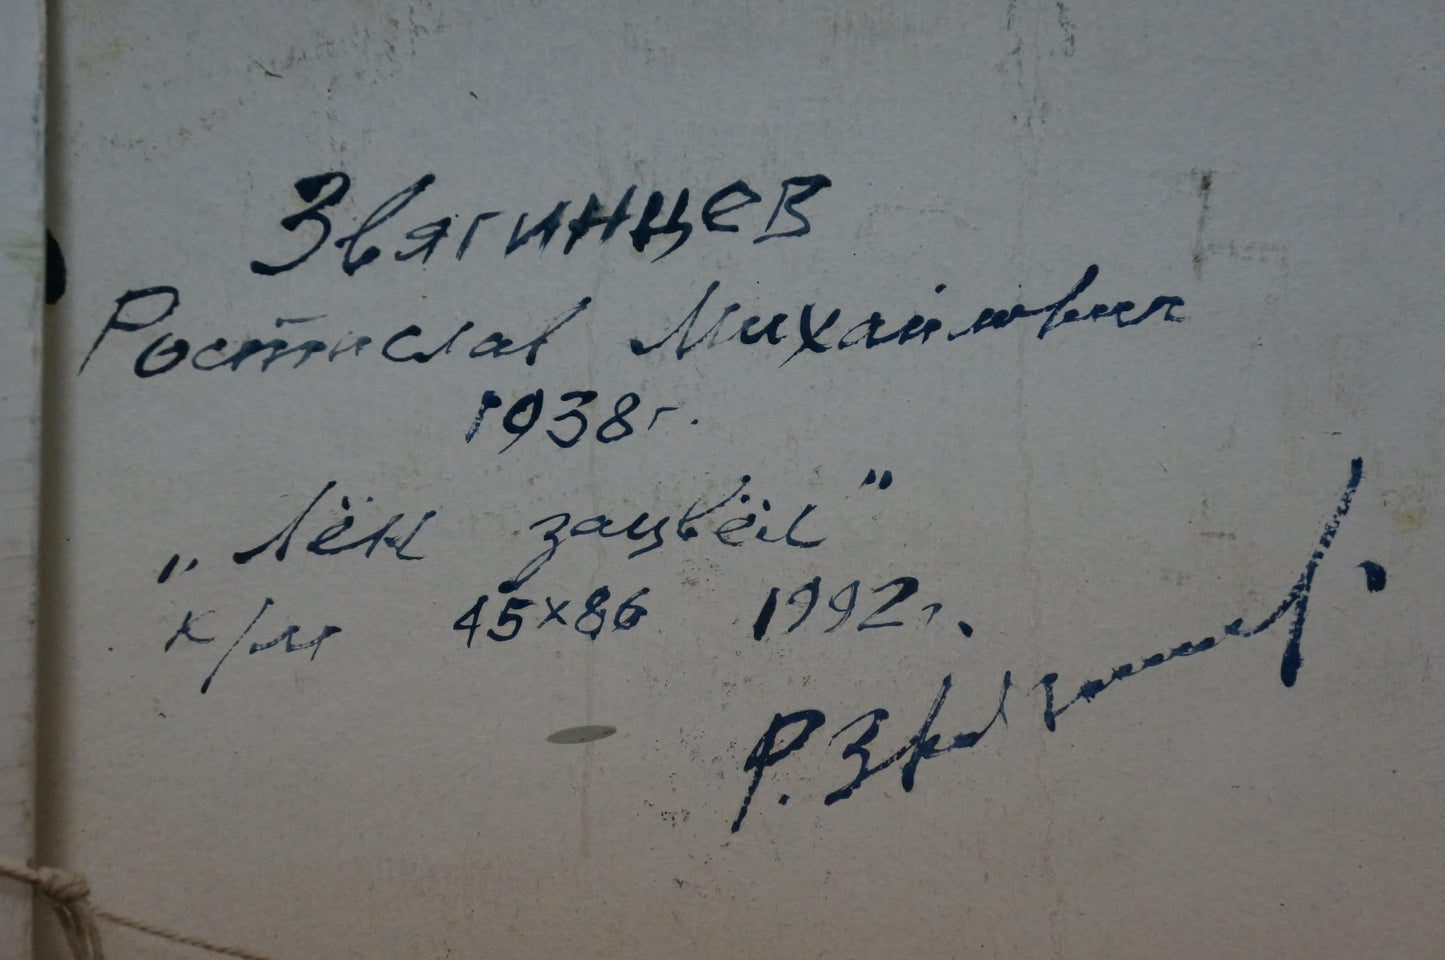 Звягинцев
Ростислав Михайлович
1938г.
„Лён зацвёл"
к/м 45×86 1992г.
Р. Звягинцев.